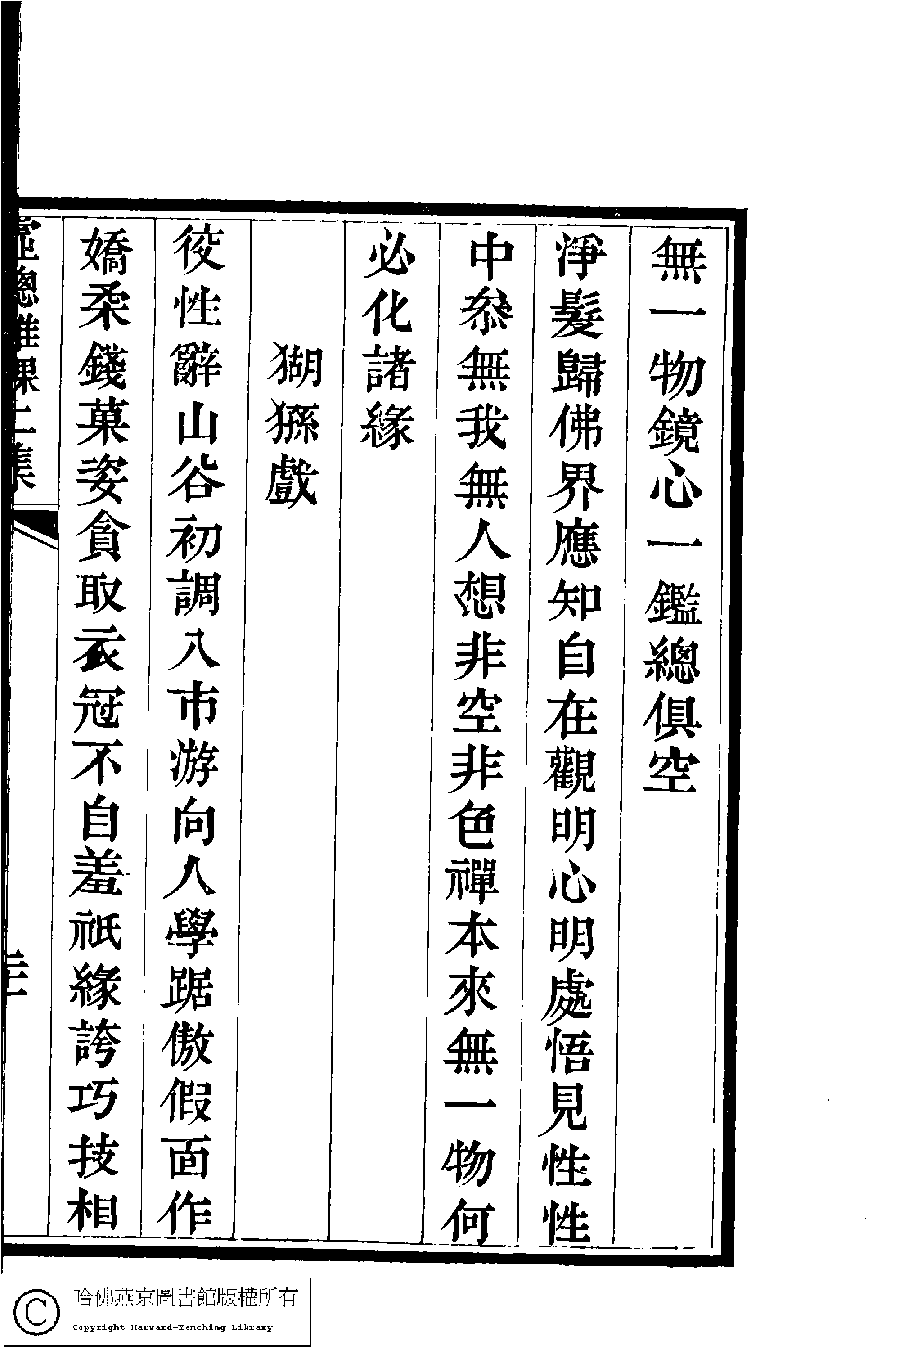 無一物鏡心一鑑總俱空
淨髮歸佛界應知自在觀明心明處悟見性性
中叅無我無人想非空非色禪本來無一物何
必化諸緣
猢猻戲
狡性辭山谷初調入市游向人學踞傲假面作
嬌柔錢菓姿貪取衣冠不自羞祇緣誇巧技相
哈佛燕京圖書館版權所有
Copyright Harvard-Yenching Library